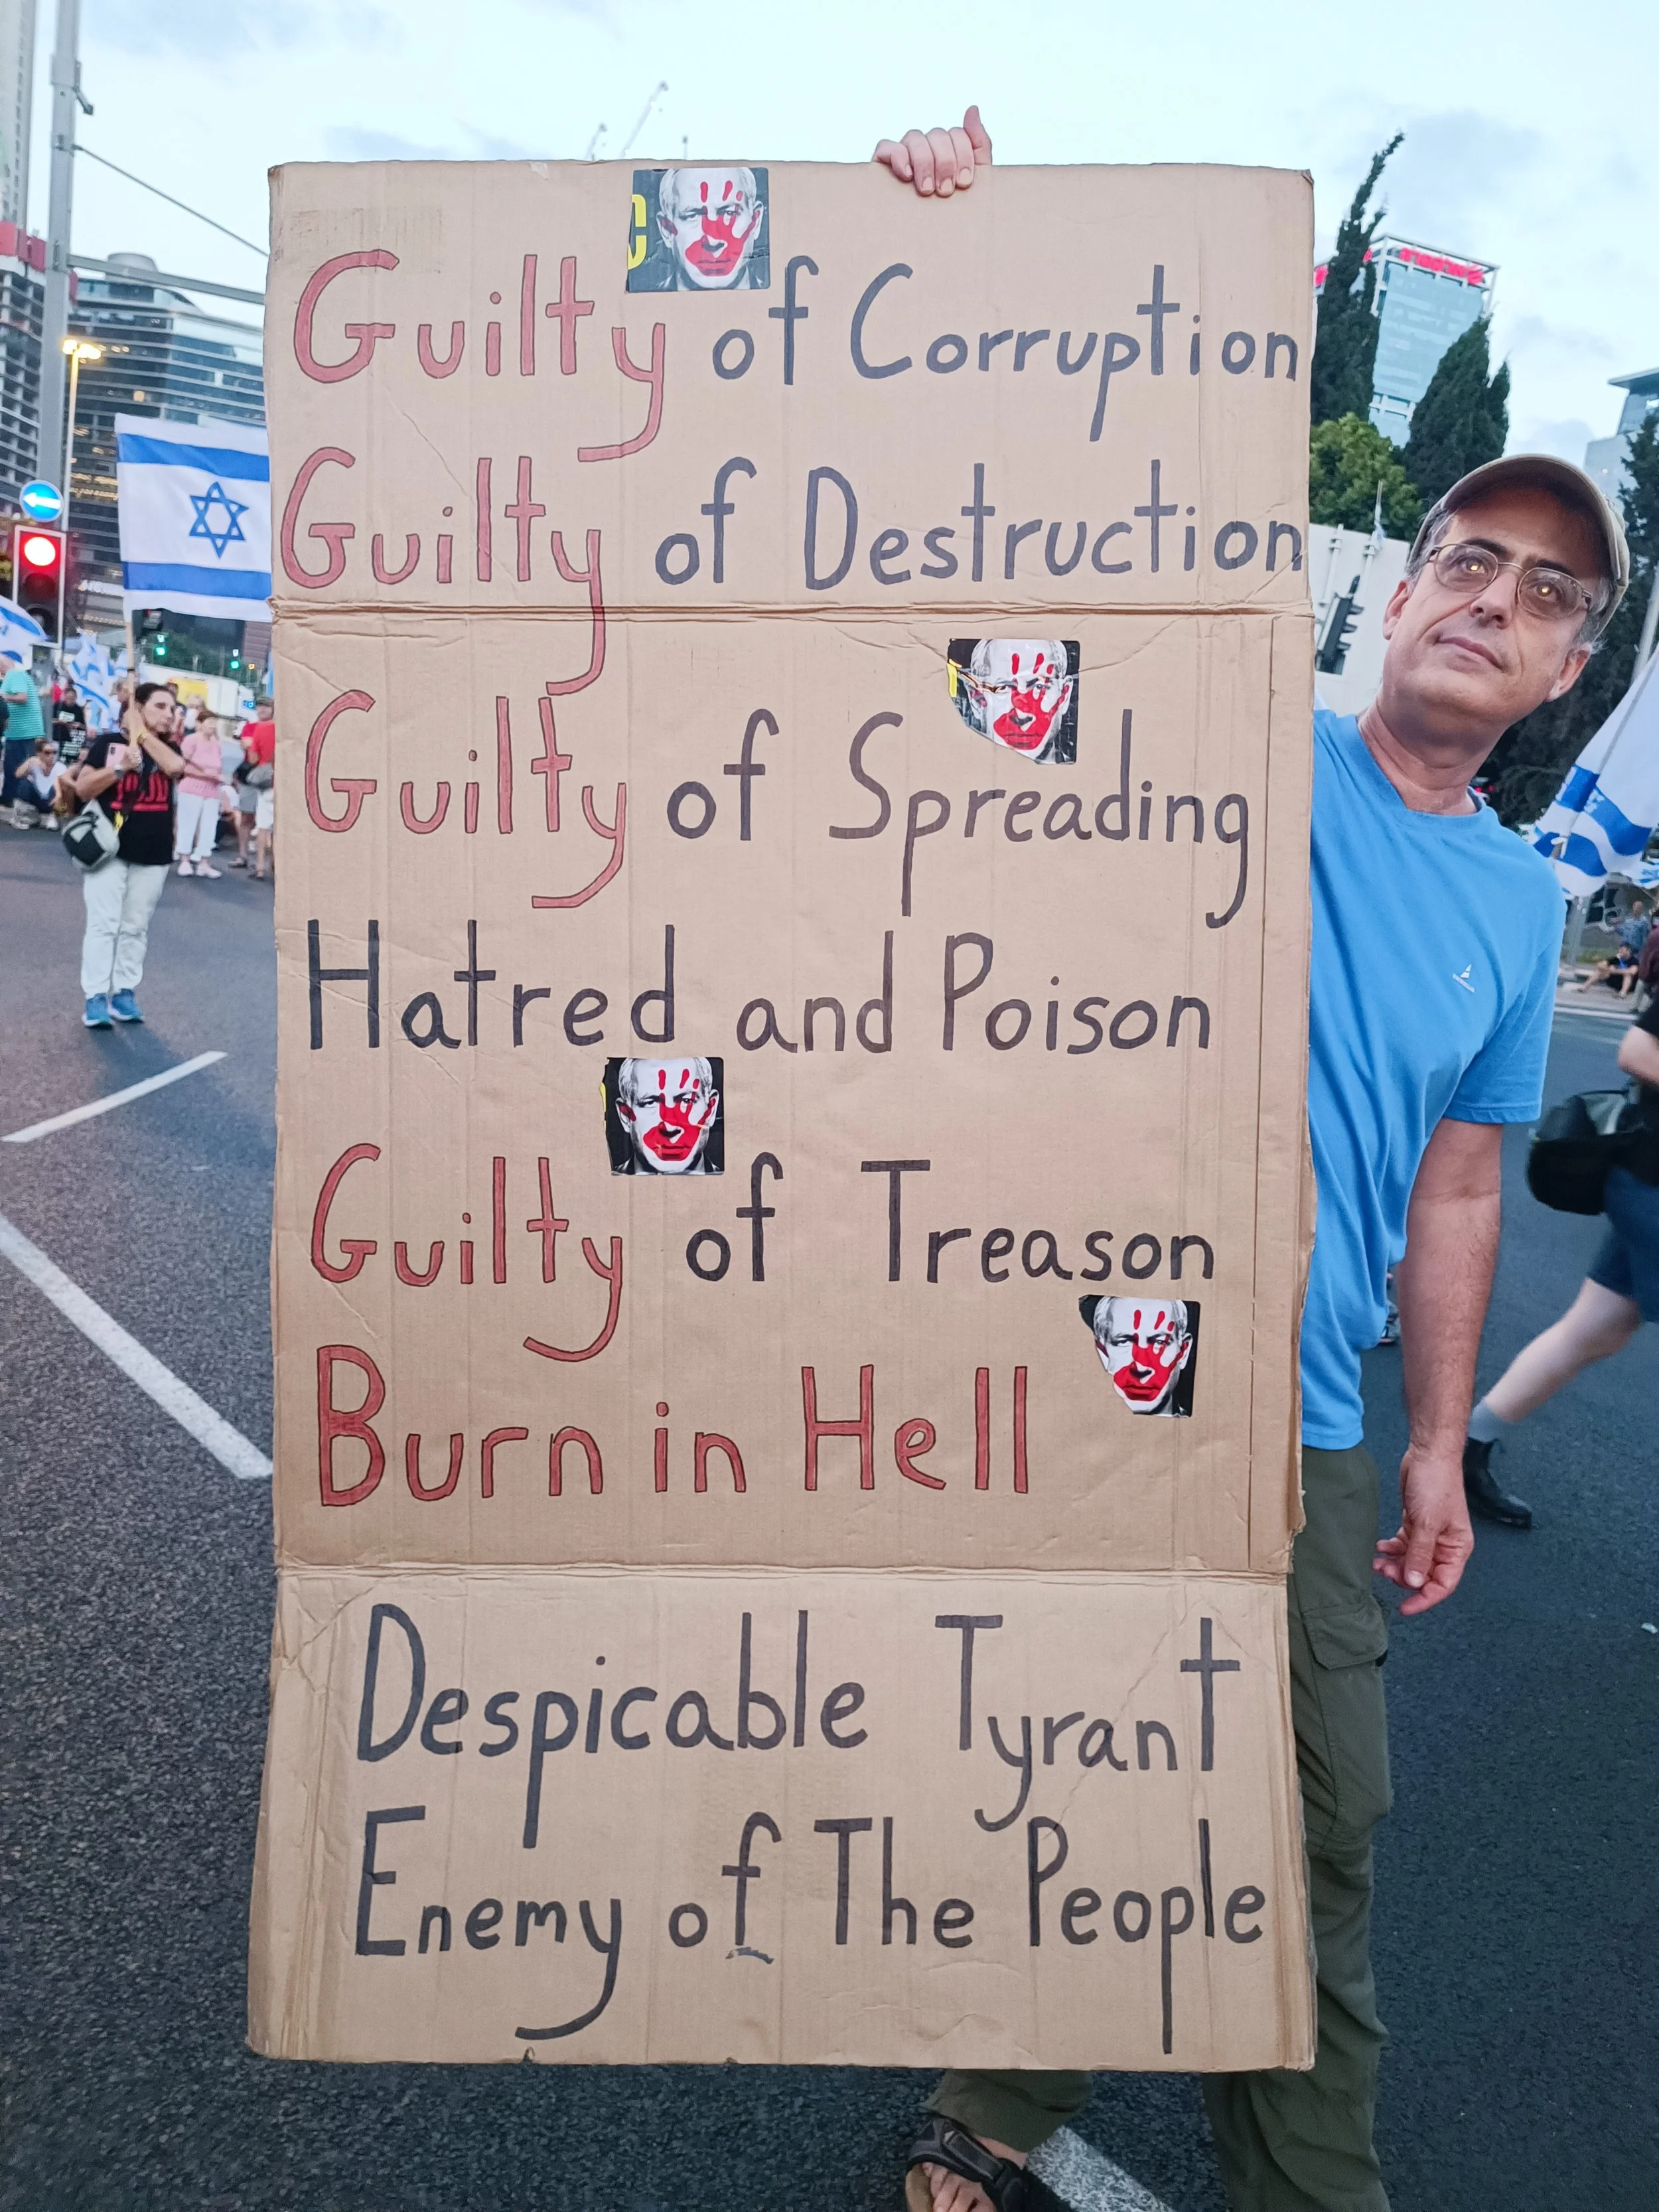 Guilty of Corruption
Guilty of Destruction
Guilty of Spreading
Hatred and Poison
Guilty of Treason
Burn in Hell
Despicable Tyrant
Enemy of The People